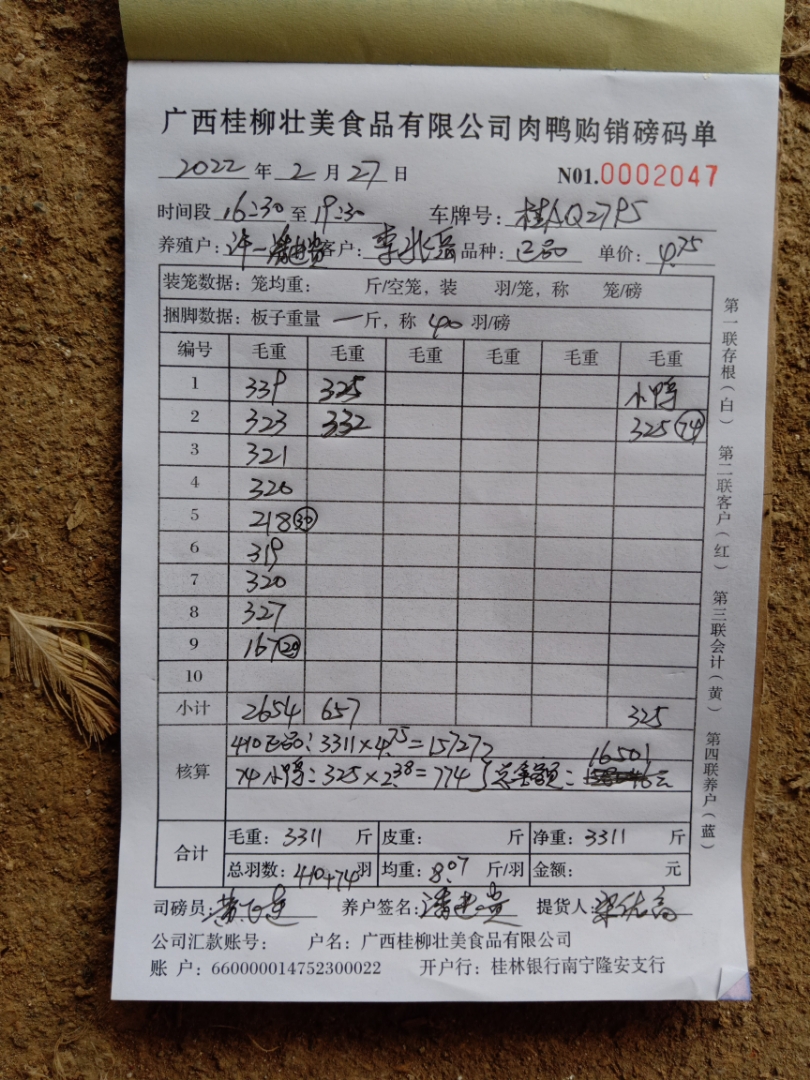 广西桂柳壮美食品有限公司肉鸭购销磅码单
2022 年 2 月 27 日 N01.0002047
时间段 16:30 至 19:30 车牌号: 桂AQ27P5
养殖户: 许一 客户: 李 品种: 正品 单价: 4.75
装笼数据: 笼均重: 斤/空笼, 装 羽/笼, 称 笼/磅
捆脚数据: 板子重量 一 斤, 称 40 羽/磅
编号 毛重 毛重 毛重 毛重 毛重 毛重
1 339 325 小鸭
2 323 332 325 74
3 321
4 320
5 218 30
6 319
7 320
8 327
9 167 20
10
小计 2654 657 325
核算
410正品: 3311×4.75=15727
16501
74小鸭: 325×2.38=774 总金额: 元
合计
毛重: 3311 斤 皮重: 斤 净重: 3311 斤
总羽数: 410+74 羽 均重: 8.07 斤/羽 金额: 元
司磅员: 黄 养户签名: 潘 贵 提货人: 梁
公司汇款账号: 户名: 广西桂柳壮美食品有限公司
账 户: 660000014752300022 开户行: 桂林银行南宁隆安支行
第一联存根(白) 第二联客户(红) 第三联会计(黄) 第四联养户(蓝)